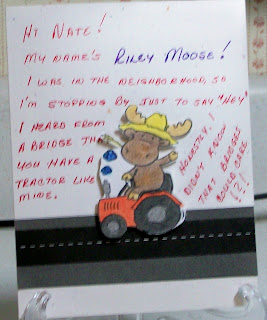 Hi Nate!
My name's Riley Moose!
I was in the neighborhood, so
I'm stopping by just to say "Hey"
I heard from
a bridge th
you have a
tractor like
mine.
Honestly, I
didn't know
that bridges
could care